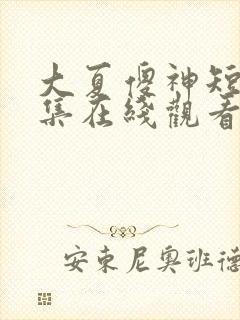 大夏傻神短
集在綫觀看
安東尼奧班德